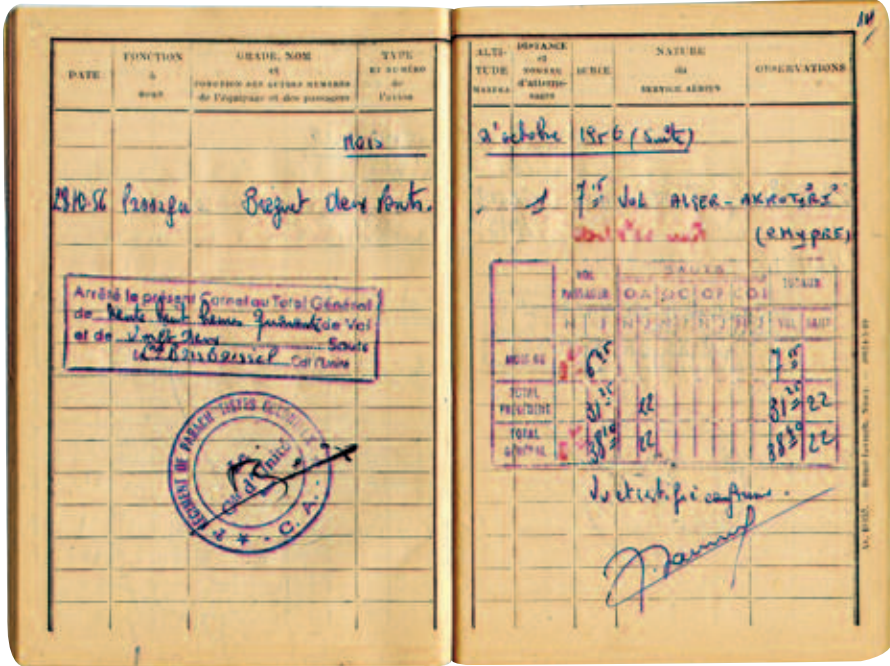 DATE
FONCTION
à
BORD
GRADE, NOM
et
FONCTION DES AUTRES MEMBRES
de l'équipage et des passagers
TYPE
ET NUMÉRO
de
l'avion
Mois
29-10-56 Passager Bréguet deux Ponts.
Arrêté le présent Carnet au Total Général
de Trente huit heures quarante de Vol
et de Vingt deux Sauts
Cdt l'Unité
RÉGIMENT DE PARACHUTISTES COLONIAUX
Cdt d'Unité
C. A.
ALTI-
TUDE
MAXIMA
DISTANCE
et
NOMBRE
d'atterris-
sages
DURÉE
NATURE
du
SERVICE AÉRIEN
OBSERVATIONS
d'octobre 1956 (Suite)
1 7 Vol ALGER - AKROTIRI
(CHYPRE)
VOL
PASSAGER
SAUTS
TOTAUX
OA OC CP COI
N J N J N J N J N J VOL SAUT
MOIS DU
TOTAL
PRÉCÉDENT 31 22 31 22
TOTAL
GÉNÉRAL 38 22 38 22
Vu et certifié conforme.